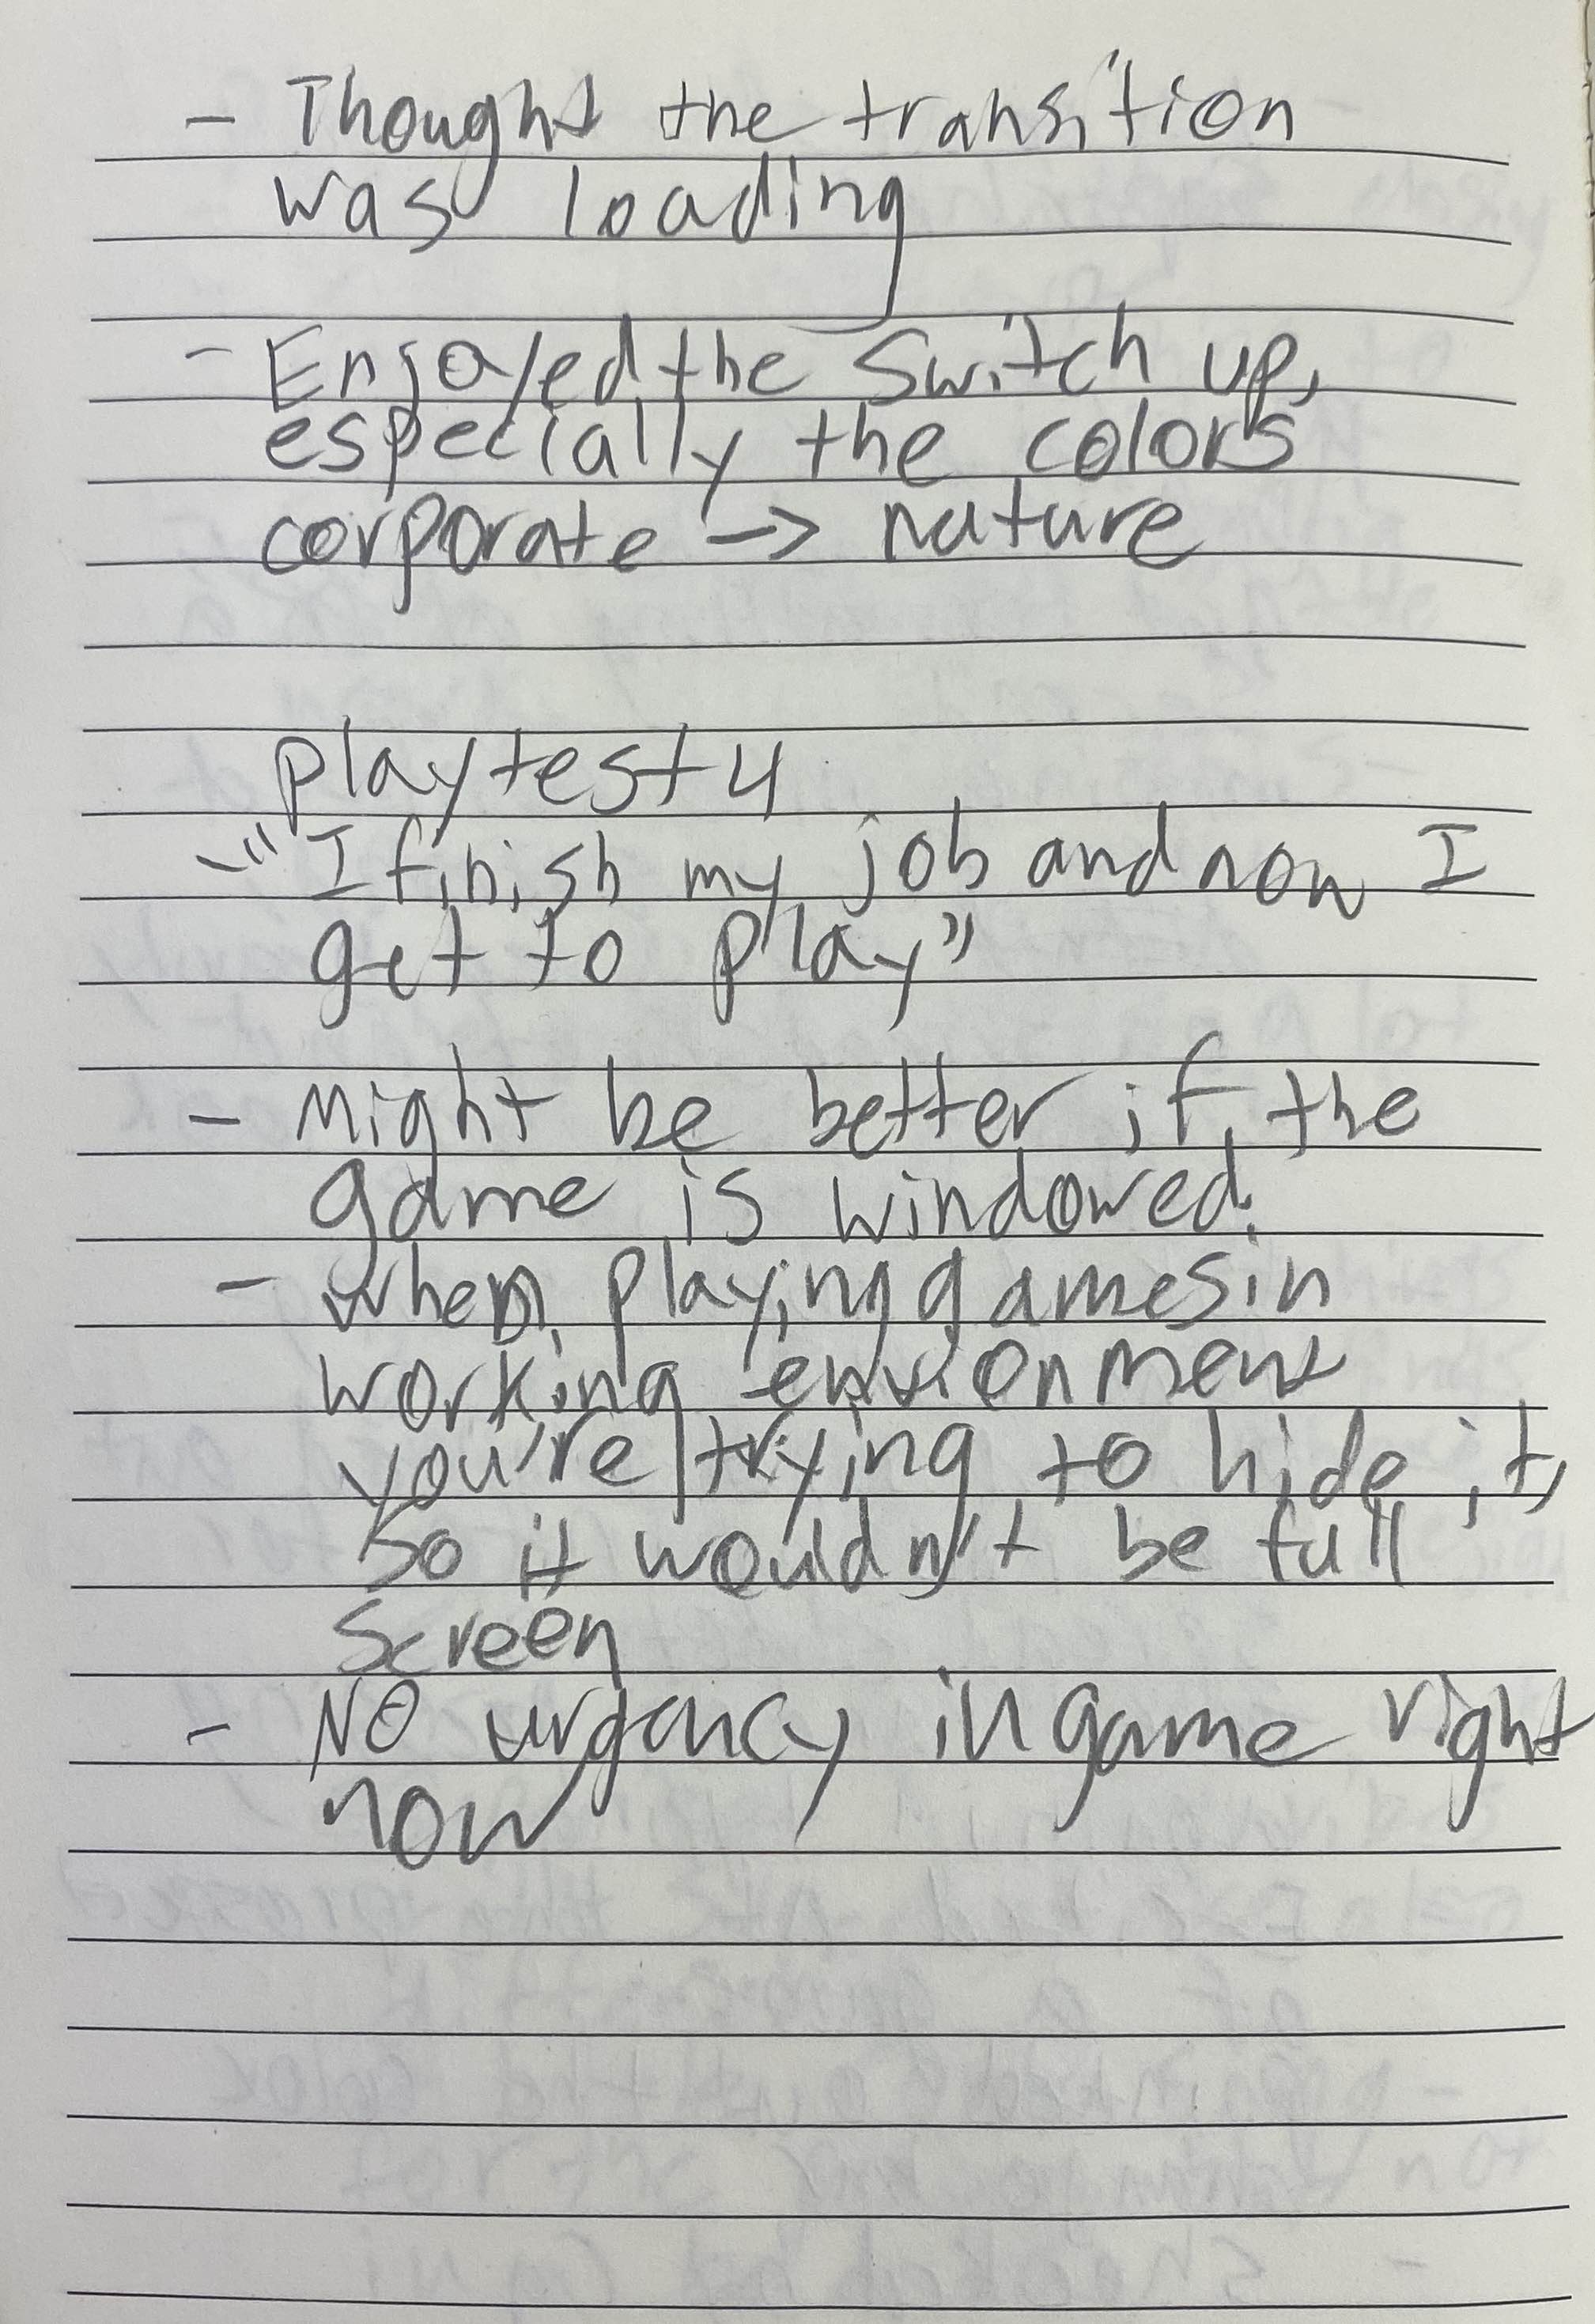 - Thought the transition
was loading
- Enjoyed the switch up,
especially the colors
corporate -> nature
playtest 4
- "I finish my job and now I
get to play"
- Might be better if the
game is windowed.
- when playing games in
working environment
you're trying to hide it,
so it wouldn't be full
screen
- NO urgency in game right
now